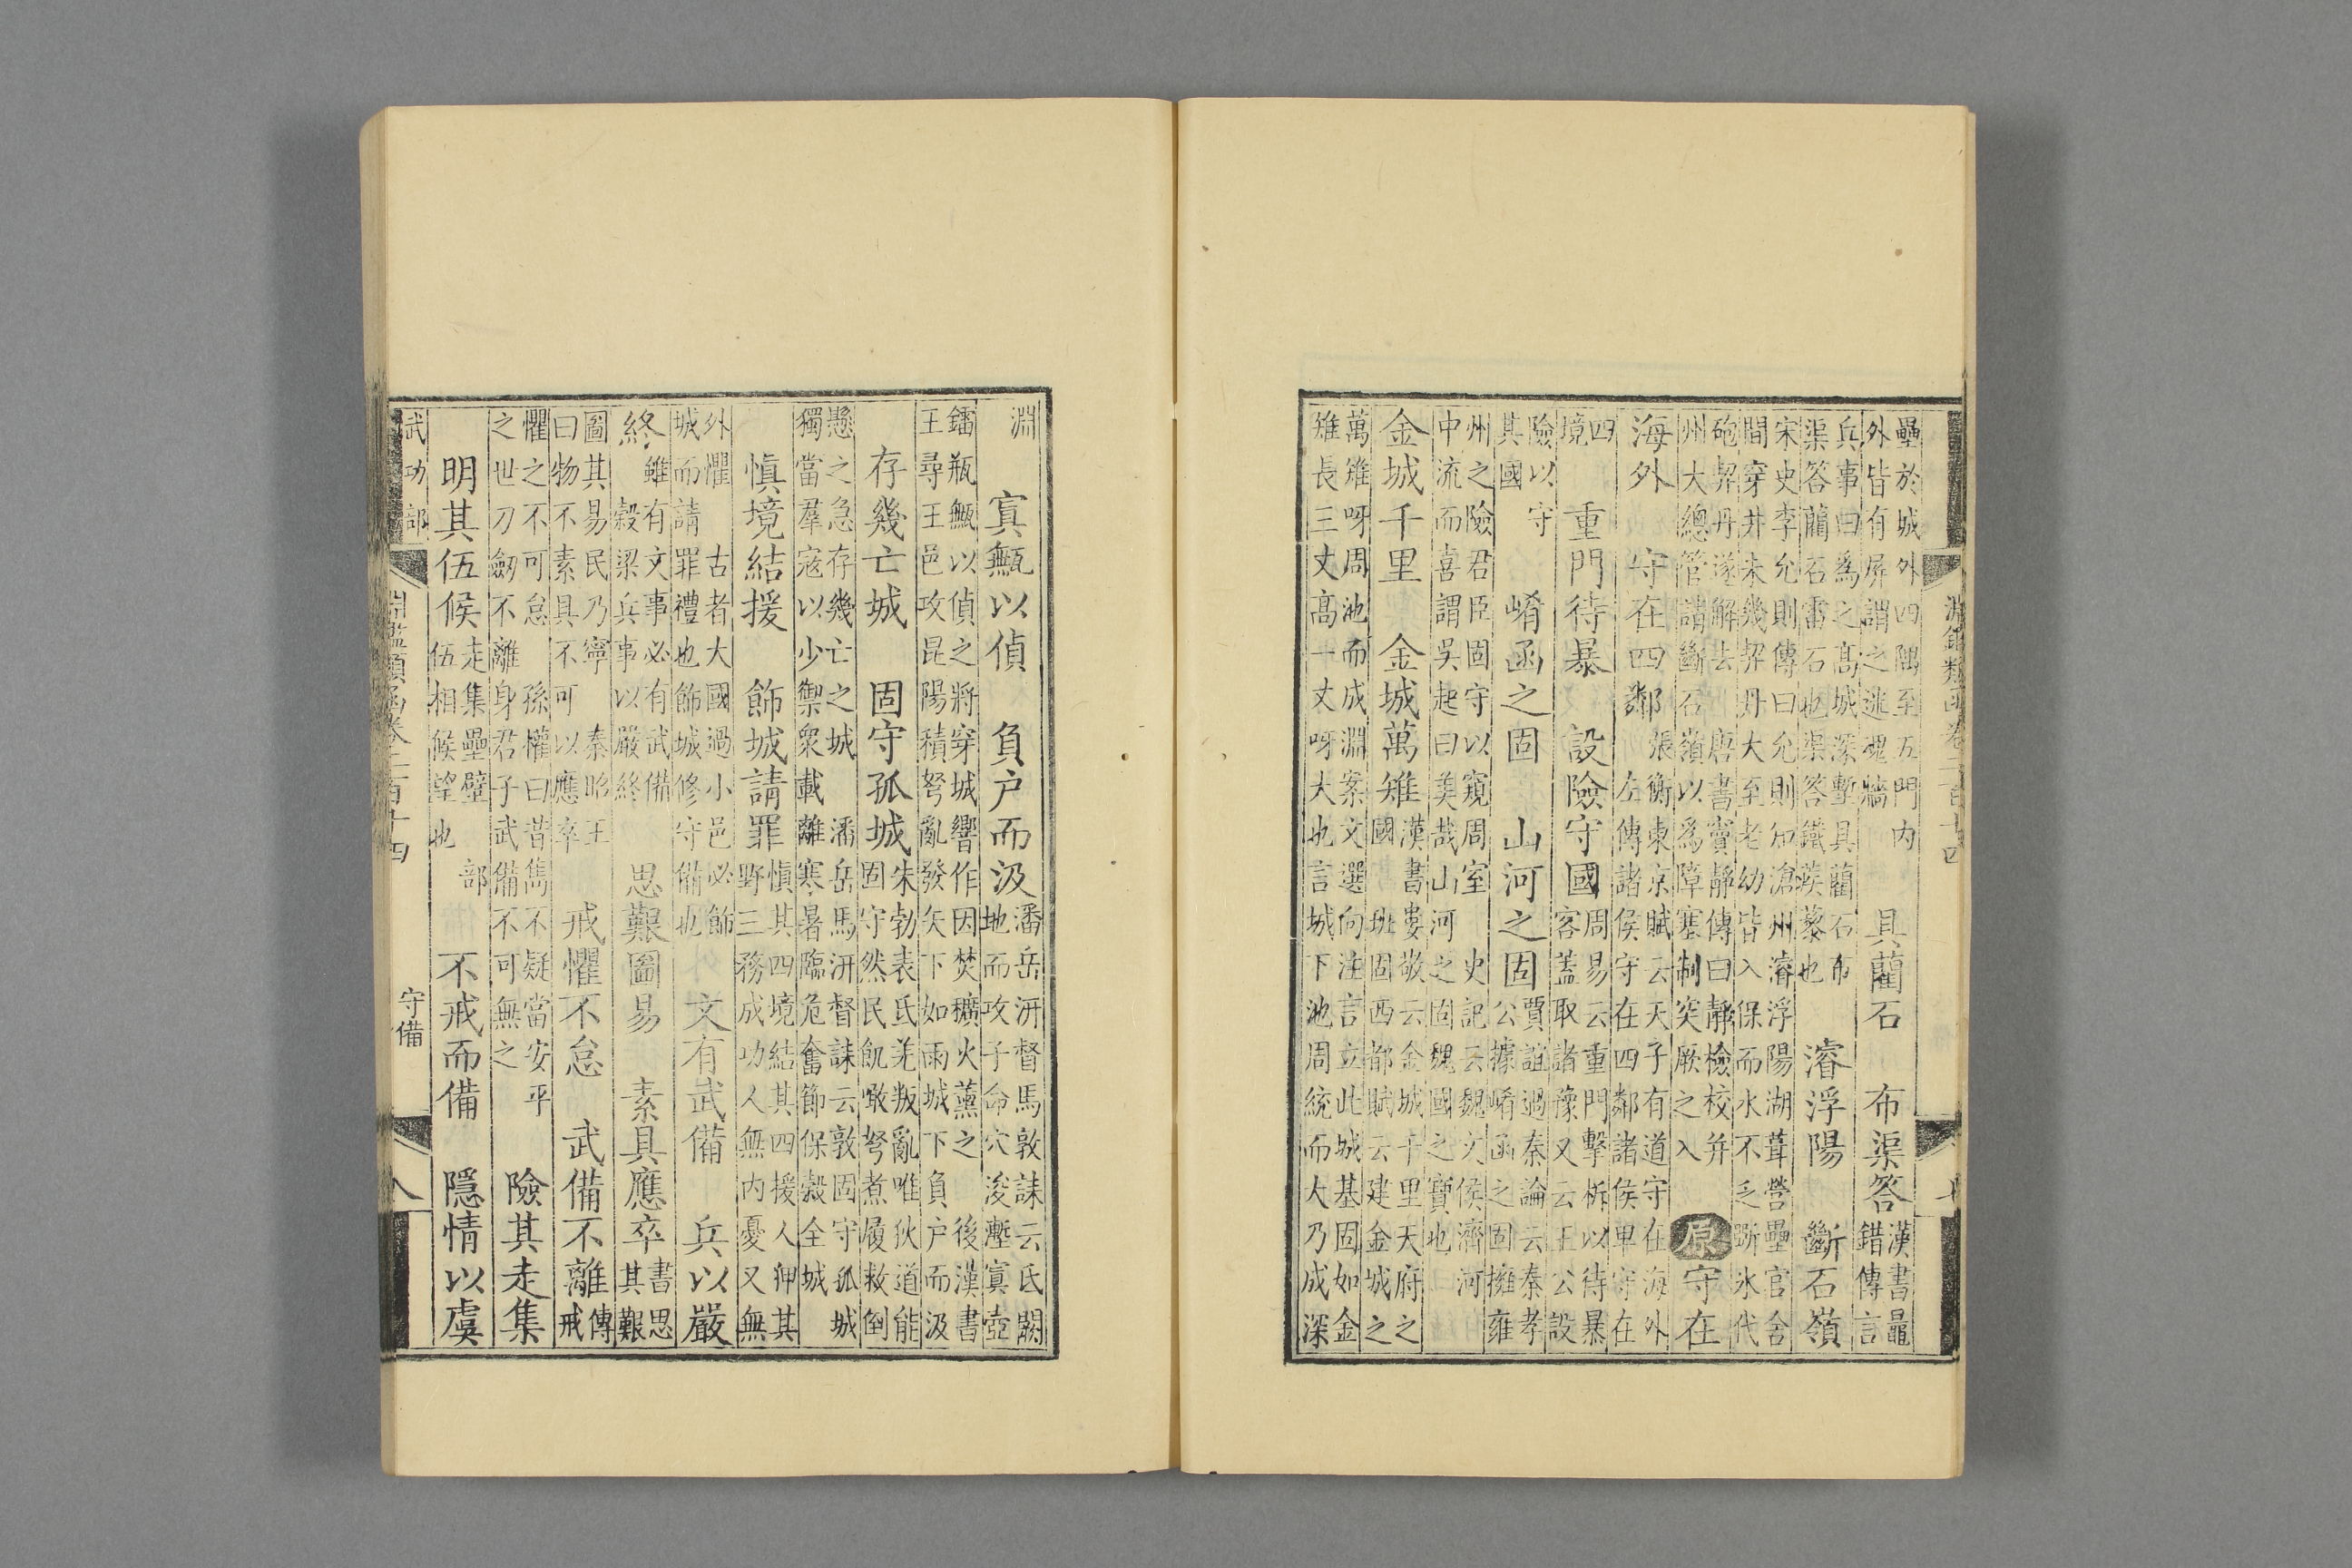 壘於城外四隅至五門内
外皆有屏謂之迷魂牆
具藺石　布渠答
漢書鼂
錯傳言
兵事曰爲之髙城深塹具藺石布
渠答藺石雷石也渠答鐵蒺藜也
濬浮陽　斷石嶺
宋史李允則傳曰允則知滄州濬浮陽湖葺營壘官舍
間穿井未幾契丹大至老幼皆入保而水不乏斲氷代
砲契丹遂解去　唐書竇靜傳曰靜檢校并
州大總管請斷石嶺以爲障塞制突厥之入
原守在
海外　守在四鄰
張衡東京賦云天子有道守在海外
左傳諸侯守在四鄰諸侯卑守在
四
境
重門待暴　設險守國
周易云重門擊柝以待暴
客蓋取諸豫又云王公設
險以守
其國
崤函之固　山河之固
賈誼過秦論云秦孝
公據崤函之固擁雍
州之險君臣固守以窺周室　史記云魏文侯濟河
中流而喜謂吳起曰美哉山河之固魏國之寶也
金城千里　金城萬雉
漢書婁敬云金城千里天府之
國　班固西都賦云建金城之
萬雉呀周池而成淵案文選向注言立此城基固如金
雉長三丈髙一丈呀大也言城下池周統而大乃成深
淵鑑類函卷二百十四
淵
寘甒以偵　負户而汲
潘岳汧督馬敦誄云氐闕
地而攻子命穴浚塹寘壺
鐳瓶甒以偵之將穿城響作因焚穬火薰之　後漢書
王尋王邑攻昆陽積弩亂發矢下如雨城下負户而汲
存幾亡城　固守孤城
朱勃表氐羌叛亂唯狄道能
固守然民飢噉弩煮履救倒
懸之急存幾亡之城　潘岳馬汧督誄云敦固守孤城
獨當羣寇以少禦衆載離寒暑臨危奮節保穀全城
慎境結援　飾城請罪
慎其四境結其四援人狎其
野三務成功人無内憂又無
外懼　古者大國過小邑必飾
城而請罪禮也飾城修守備也
文有武備　兵以嚴
終
雖有文事必有武備
穀梁兵事以嚴終
思艱圖易　素具應卒
書思
其艱
圖其易民乃寧　秦昭王
曰物不素具不可以應卒
戒懼不怠　武備不離
傳
戒
懼之不可怠　孫權曰昔雋不疑當安平
之世刀劒不離身君子武備不可無之
險其走集
明其伍候
走集壘壁　部
伍相候望也
不戒而備　隱情以虞
武功部
淵鑑類函卷二百十四
守備
八